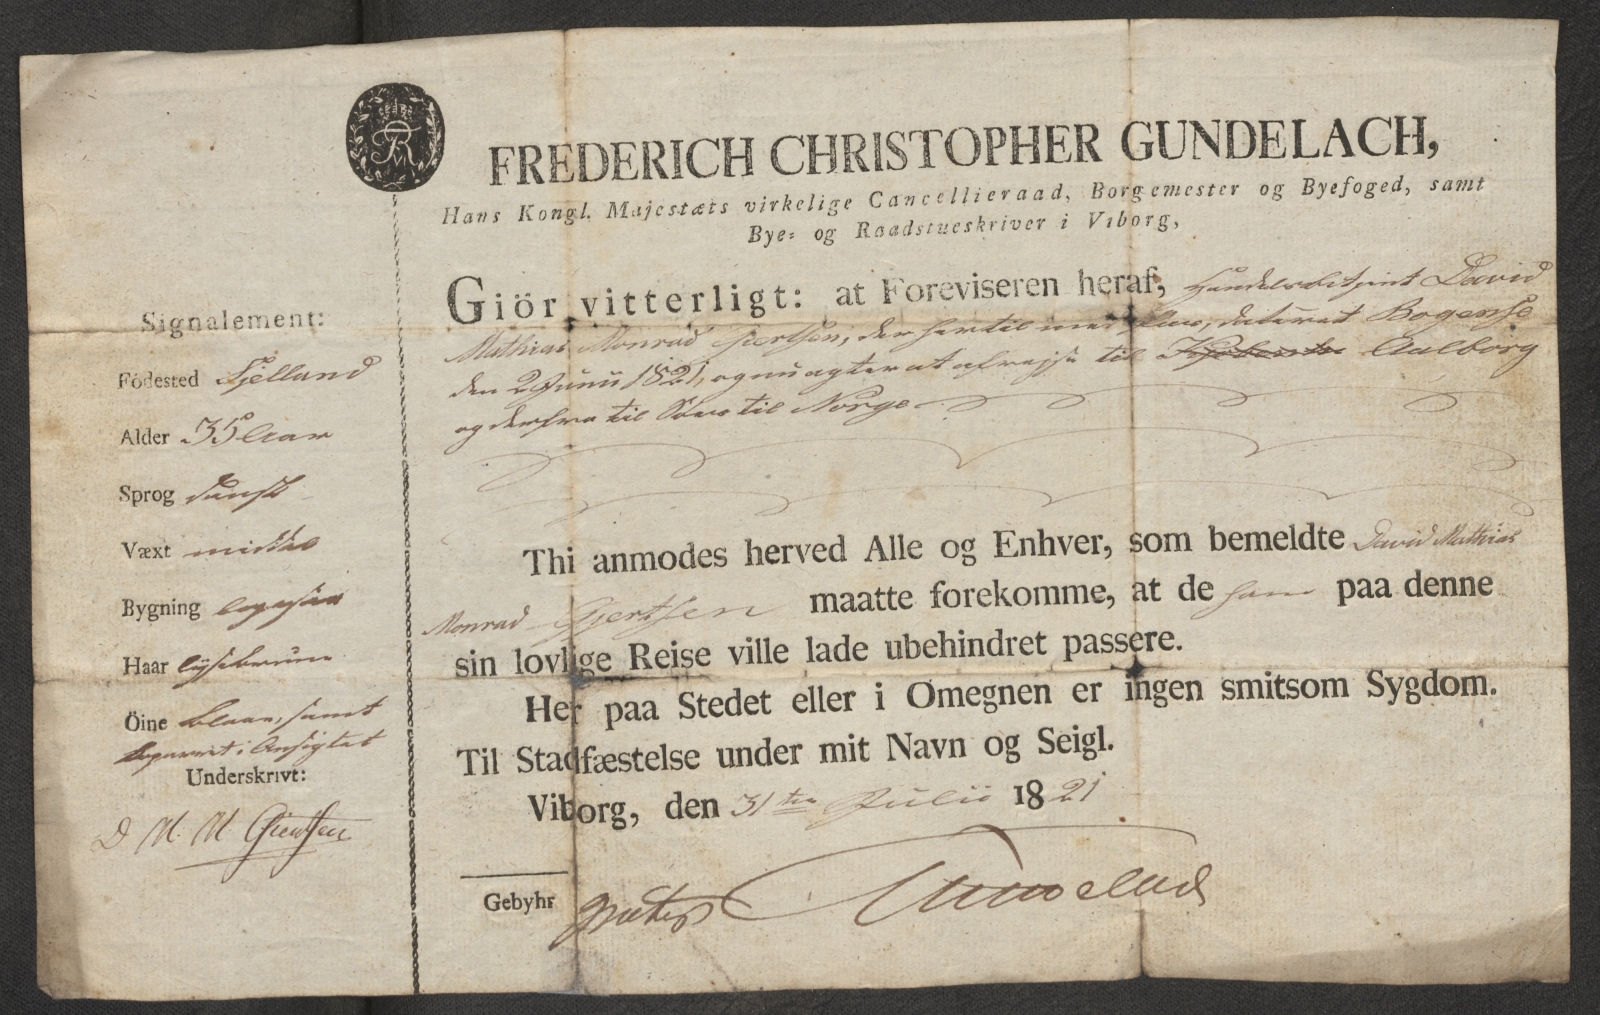 FREDERICH CHRISTOPHER GUNDELACH,
Hans Kongl. Majestæts virkelige Cancellieraad, Borgemester og Byefoged, samt
Bye- og Raadstueskriver i Viborg,
Giör vitterligt: at Foreviseren heraf, Handelsbetjent David
Mathias Monrad Gjertsen, der her til med Pas, dateret Bogense
den 2 Junii 1821, og nu agter at afrejse til Aalborg
og derfra til Søes til Norge
Thi anmodes herved Alle og Enhver, som bemeldte David Mathias
Monrad Gjertsen maatte forekomme, at de ham paa denne
sin lovlige Reise ville lade ubehindret passere.
Her paa Stedet eller i Omegnen er ingen smitsom Sygdom.
Til Stadfæstelse under mit Navn og Seigl.
Viborg, den 31te Julii 1821
Gebyhr gratis Gundelach
Signalement:
Födested Sjelland
Alder 35 Aar
Sprog dansk
Væxt middel
Bygning
Haar lysebrune
Öine blaae, samt
i Ansigtet
Underskrivt:
D M. M Gjertsen